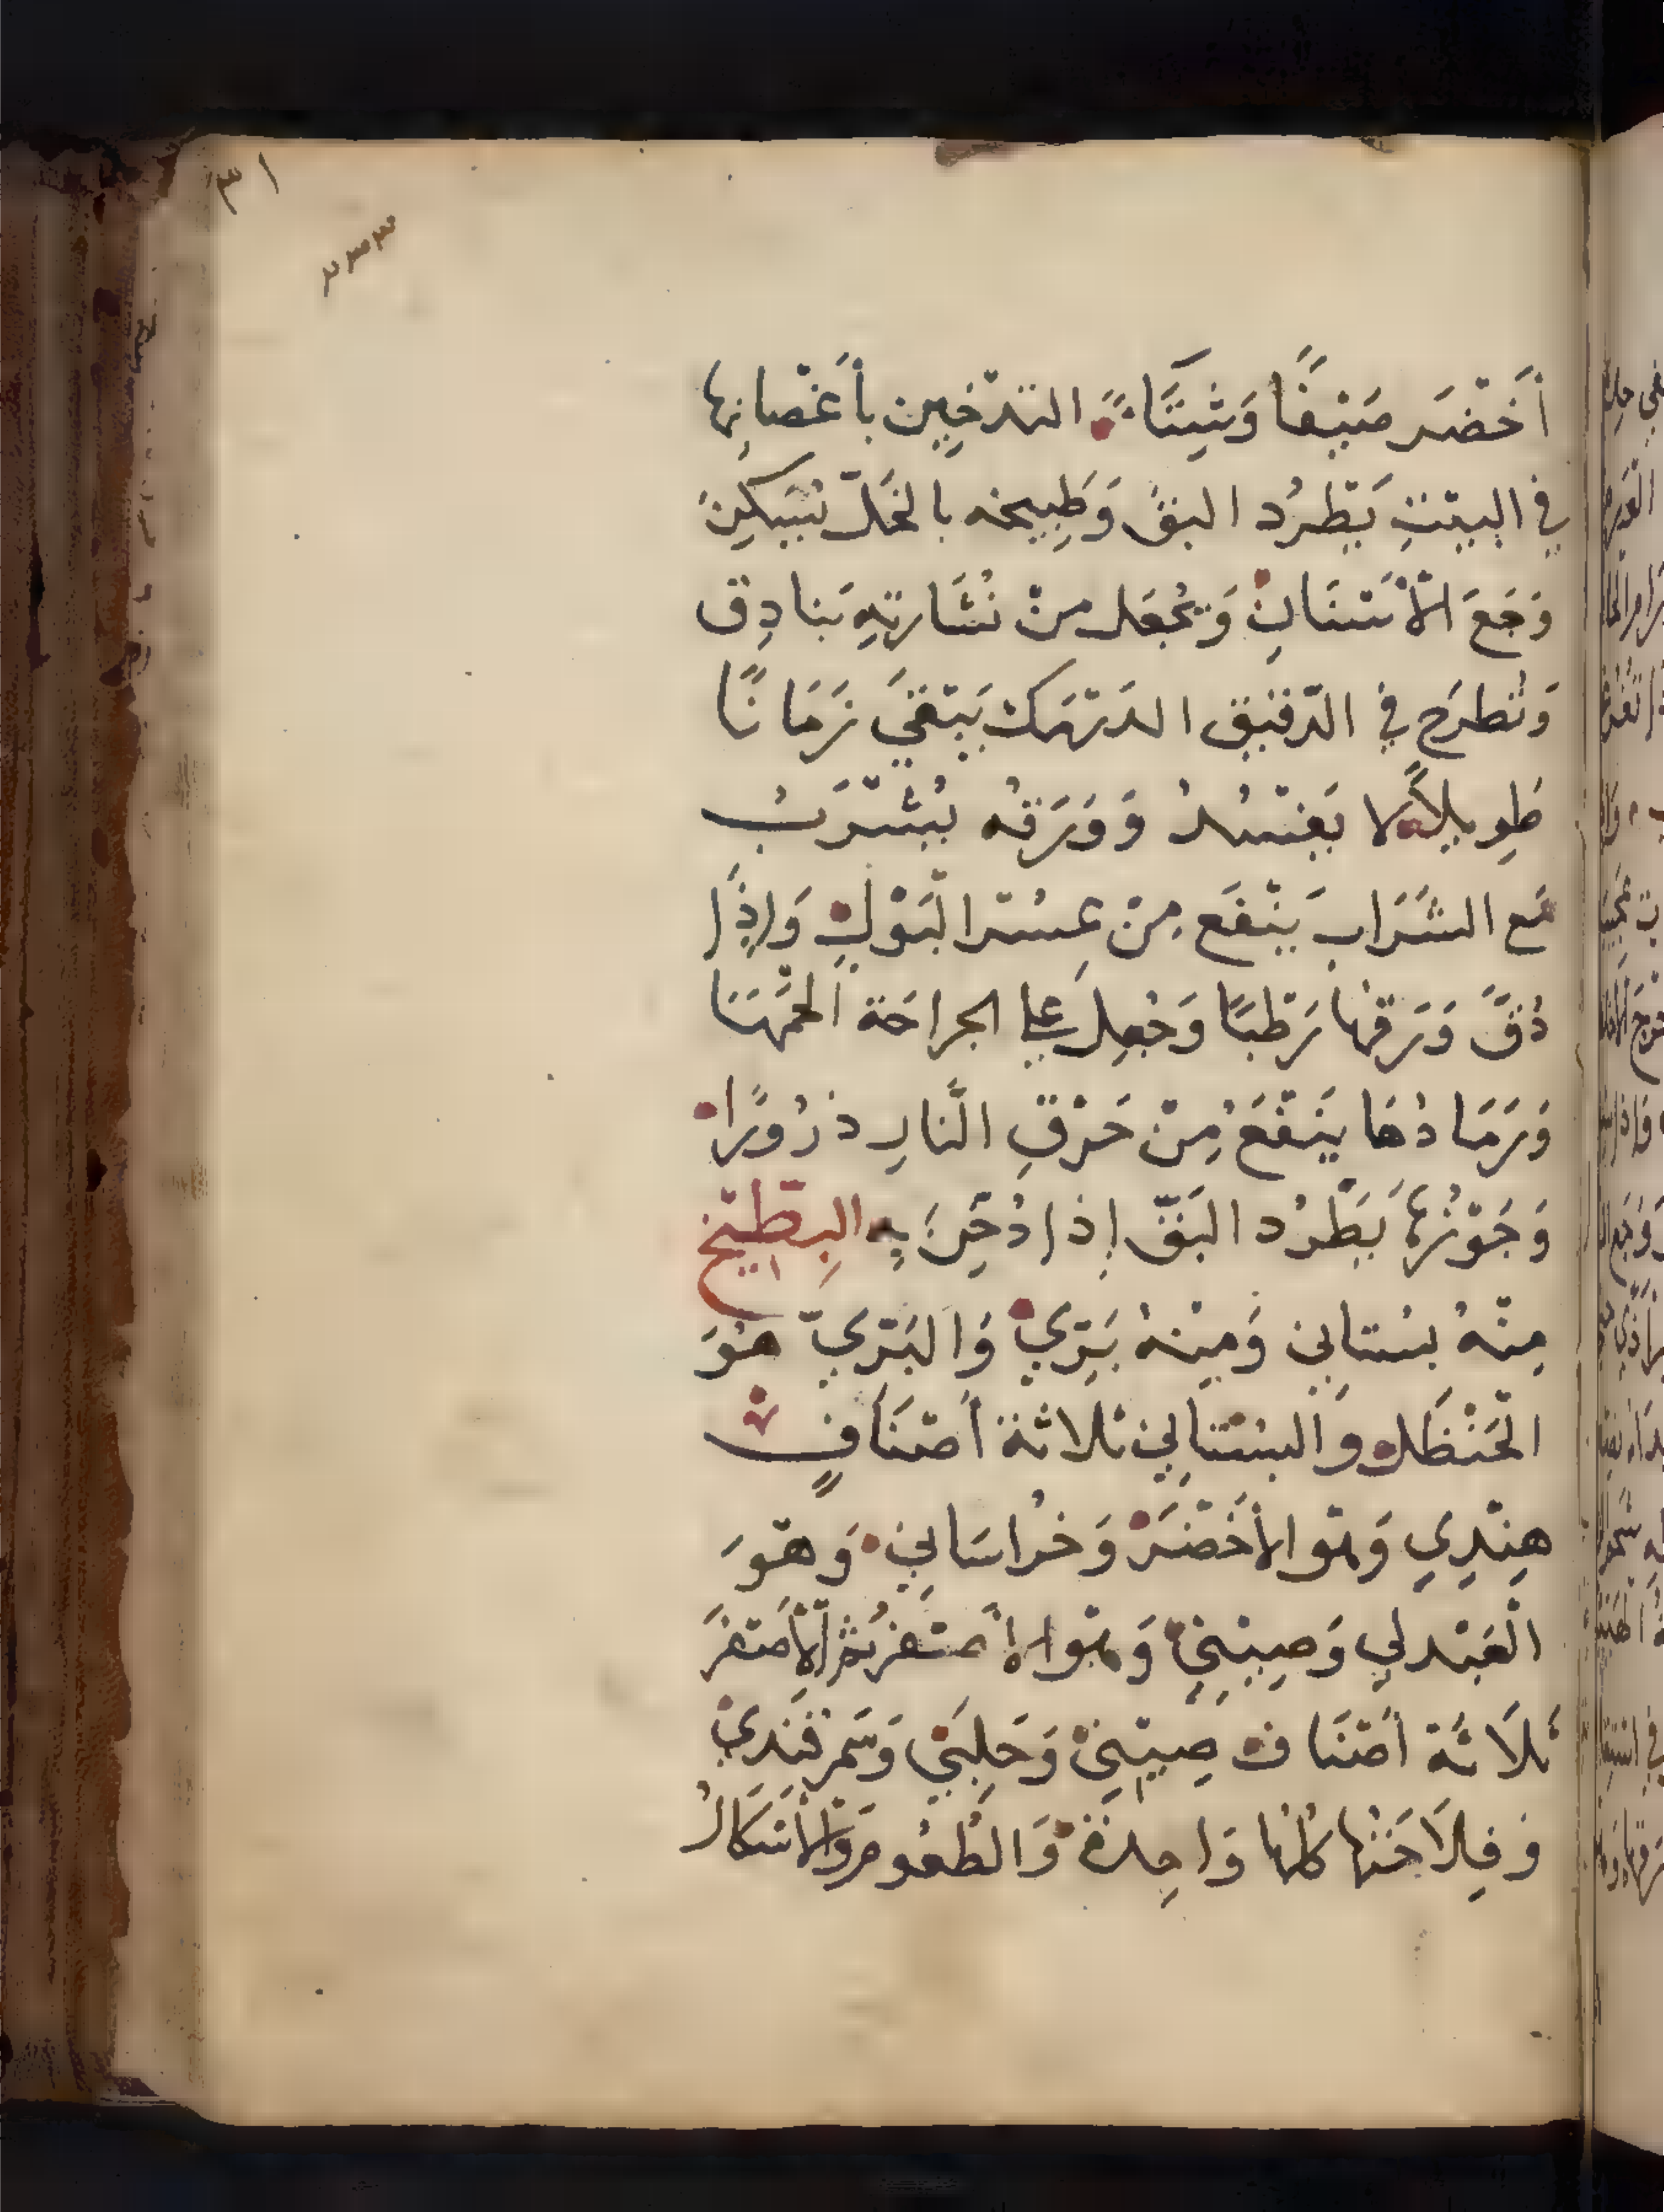 ٣١
٢٣٣
أَخْضَر صَيْفًا وَشِتَاءً التدْخِين بأَغْصانِها
في البيْتِ يَطْرُد البقَّ وَطَبِيخه بالخَلّ يُسَكِّن
وَجَعَ الأَسْنَانِ وَيُجْعَل مِنْ نُشَارتهِ بَنادِق
وَتُطرَح في الدّقيق الدَرْمَك يَبْقَي زَمَانًا
طَوِيلاً لا يَفْسُدُ وَوَرَقهُ يُشْرَبُ
مَع الشَّرَاب يَنْفَع مِنْ عِسْر البَوْلِ وَإذَا
دُقَّ وَرَقها رَطْبًا وَجُعِل علي الجراحَة الحَمَهَا
وَرَمَادُهَا يَنْفَعُ مِنْ حَرْقِ النَّارِ ذرُورًا
وَجَوْزُهَا يَطْرُد البَقّ إذا دُخِّنَ بِهِ البِطّيخ
مِنْهُ بسْتاني وَمِنْهُ بَرِّي وَالبَرّي هُوَ
الحَنْظَل والبسْتَاني ثلاثة أَصْنَافٍ
هِنْدِي وَهُو الأَخْضَر وَخُراسَاني وَهُوَ
العَبْدلي وَصِيْني وَهُو الأَصْفَر ثمّ الأَصْفَر
ثَلَاثَة أَصْنَاف صِيْني وَحَلَبي وَسَمرقَندي
وَفِلَاحَتُها كُلّها وَاحِدَة وَالطُعُوم وَالأَشكَالُ